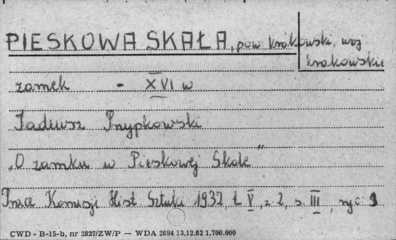 PIESKOWA SKAŁA, pow. krakowski, woj
krakowskie
zamek - XVI w
Tadeusz Przypkowski
„O zamku w Pieskowej Skale"
Prace Komisji Hist Sztuki 1932, t V, z 2, s. III, ryc 1
CWD - B-15-b, nr 2827/ZW/P — WDA 2694 13.12.62 1.700.000